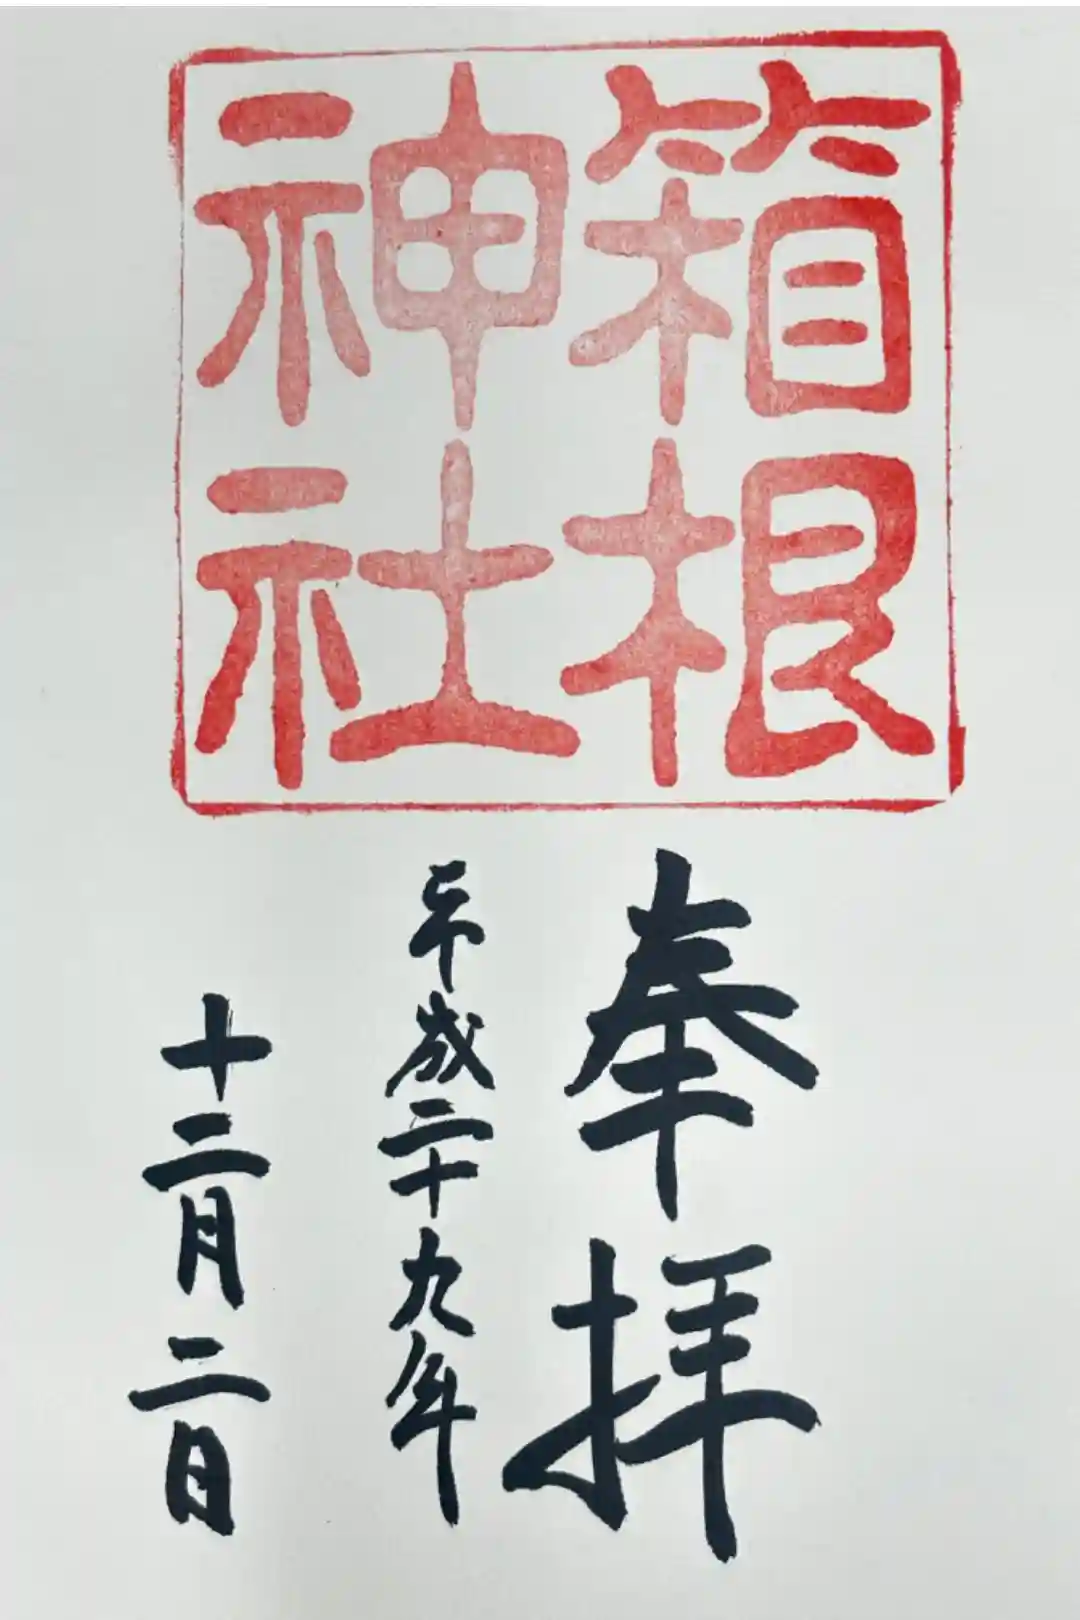 箱根
神社
奉拝
平成二十九年
十二月二日